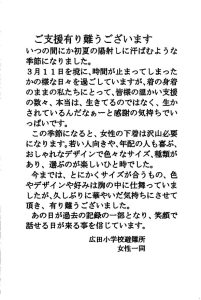 ご支援有り難うございます
いつの間にか初夏の陽射しに汗ばむような
季節になりました。
3月11日を境に、時間が止まってしまった
かの様な日々を過ごしていますが、着の身着
のままの私たちにとって、皆様の温かい支援
の数々、本当は、生きてるのではなく、生か
されているんだなぁーと感謝の気持ちでい
っぱいです。
この季節になると、女性の下着は沢山必要
になります。若い人向きや、年配の人も喜ぶ、
おしゃれなデザインで色々なサイズ、種類が
あり、選ぶのが楽しいひと時でした。
今までは、とにかくサイズが合うもの、色
やデザインや好みは胸の中に仕舞っていま
したが、久しぶりに華やいだ気持ちにさせて
頂き、有り難うございました。
あの日が過去の記録の一部となり、笑顔で
話せる日が来る事を信じています。
広田小学校避難所
女性一同